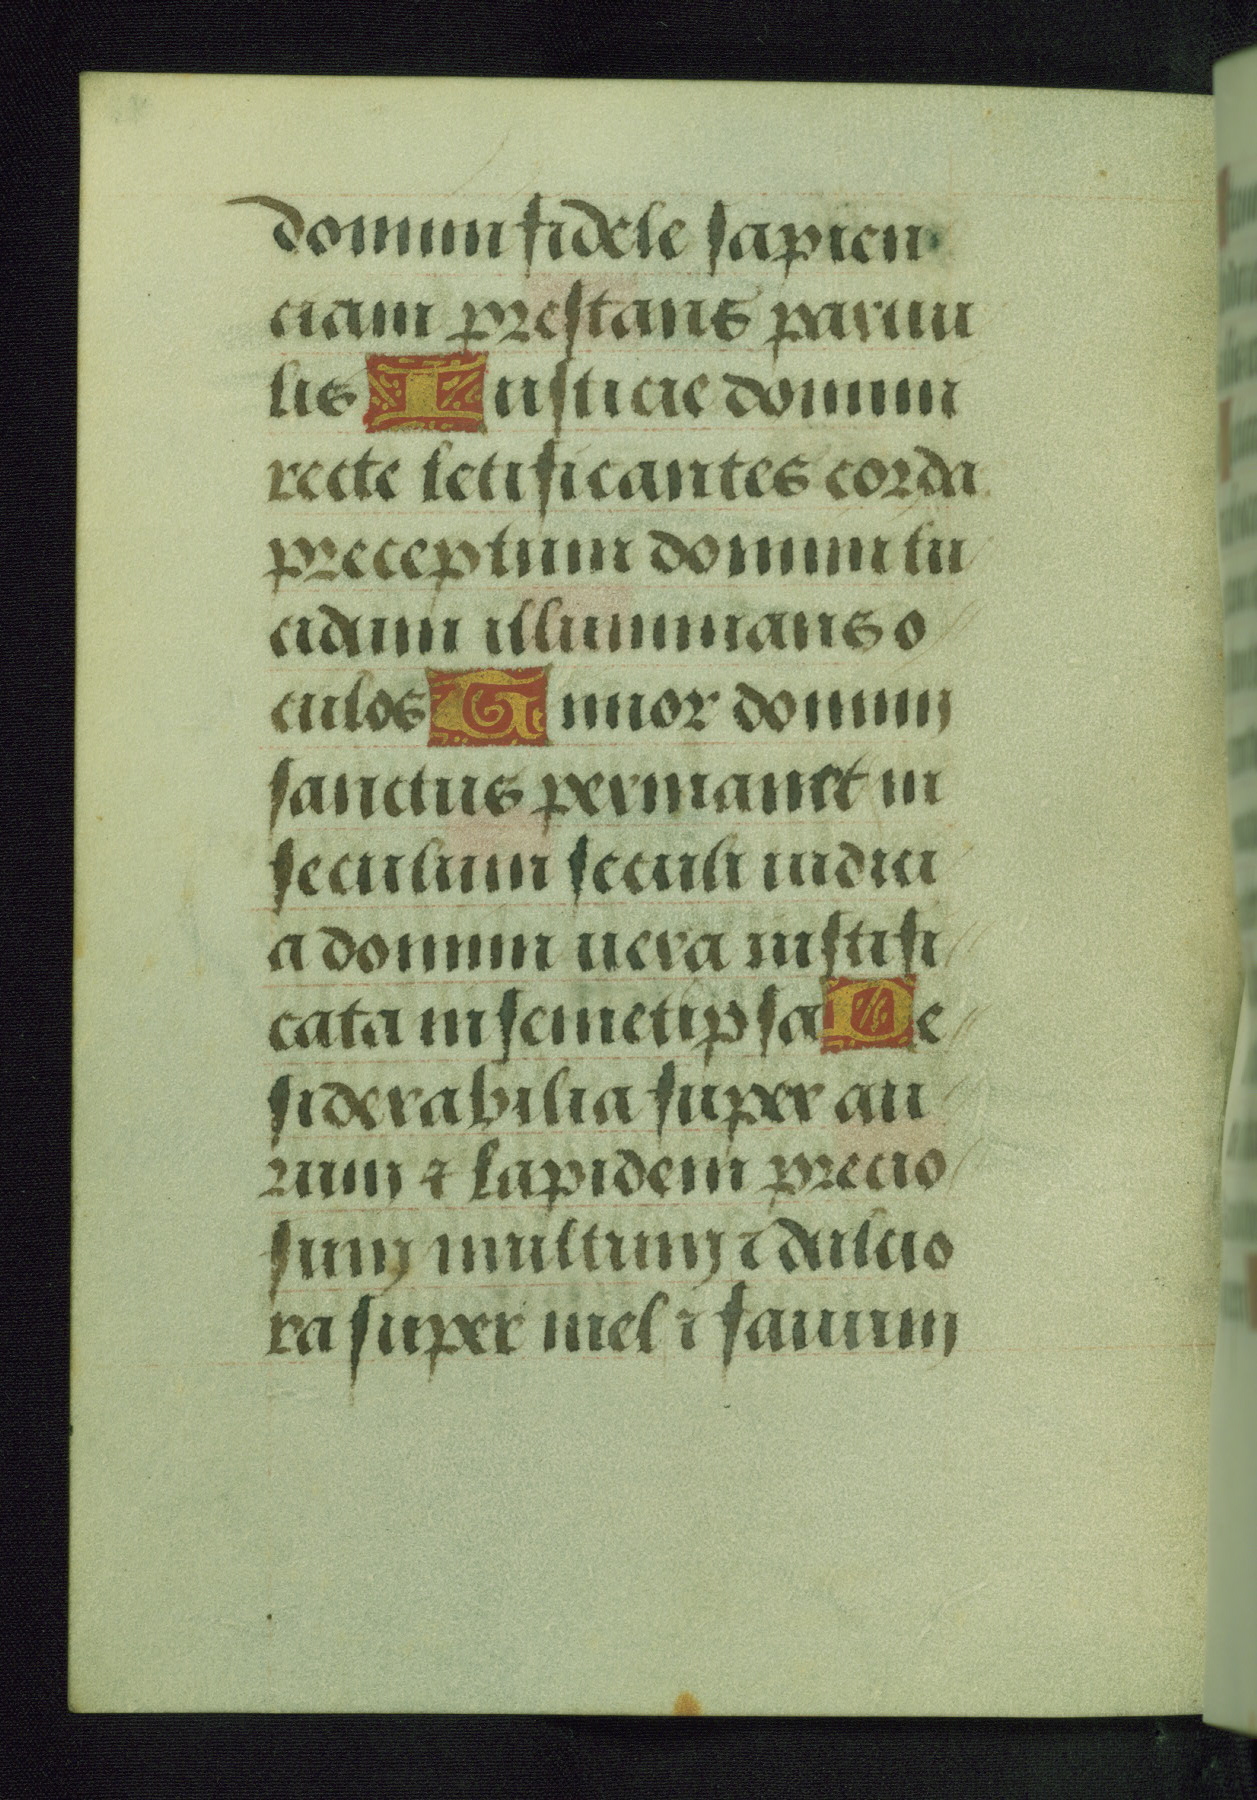 domini fidele sapien
ciam prestans paruu
lis Iusticie domini
recte letificantes corda
preceptum domini lu
cidum illuminans o
culos Timor domini
sanctus permanet in
seculum seculi iudici
a domini uera iustifi
cata in semetipsa De
siderabilia super au
rum ⁊ lapidem precio
sum multum ⁊ dulcio
ra super mel ⁊ fauum